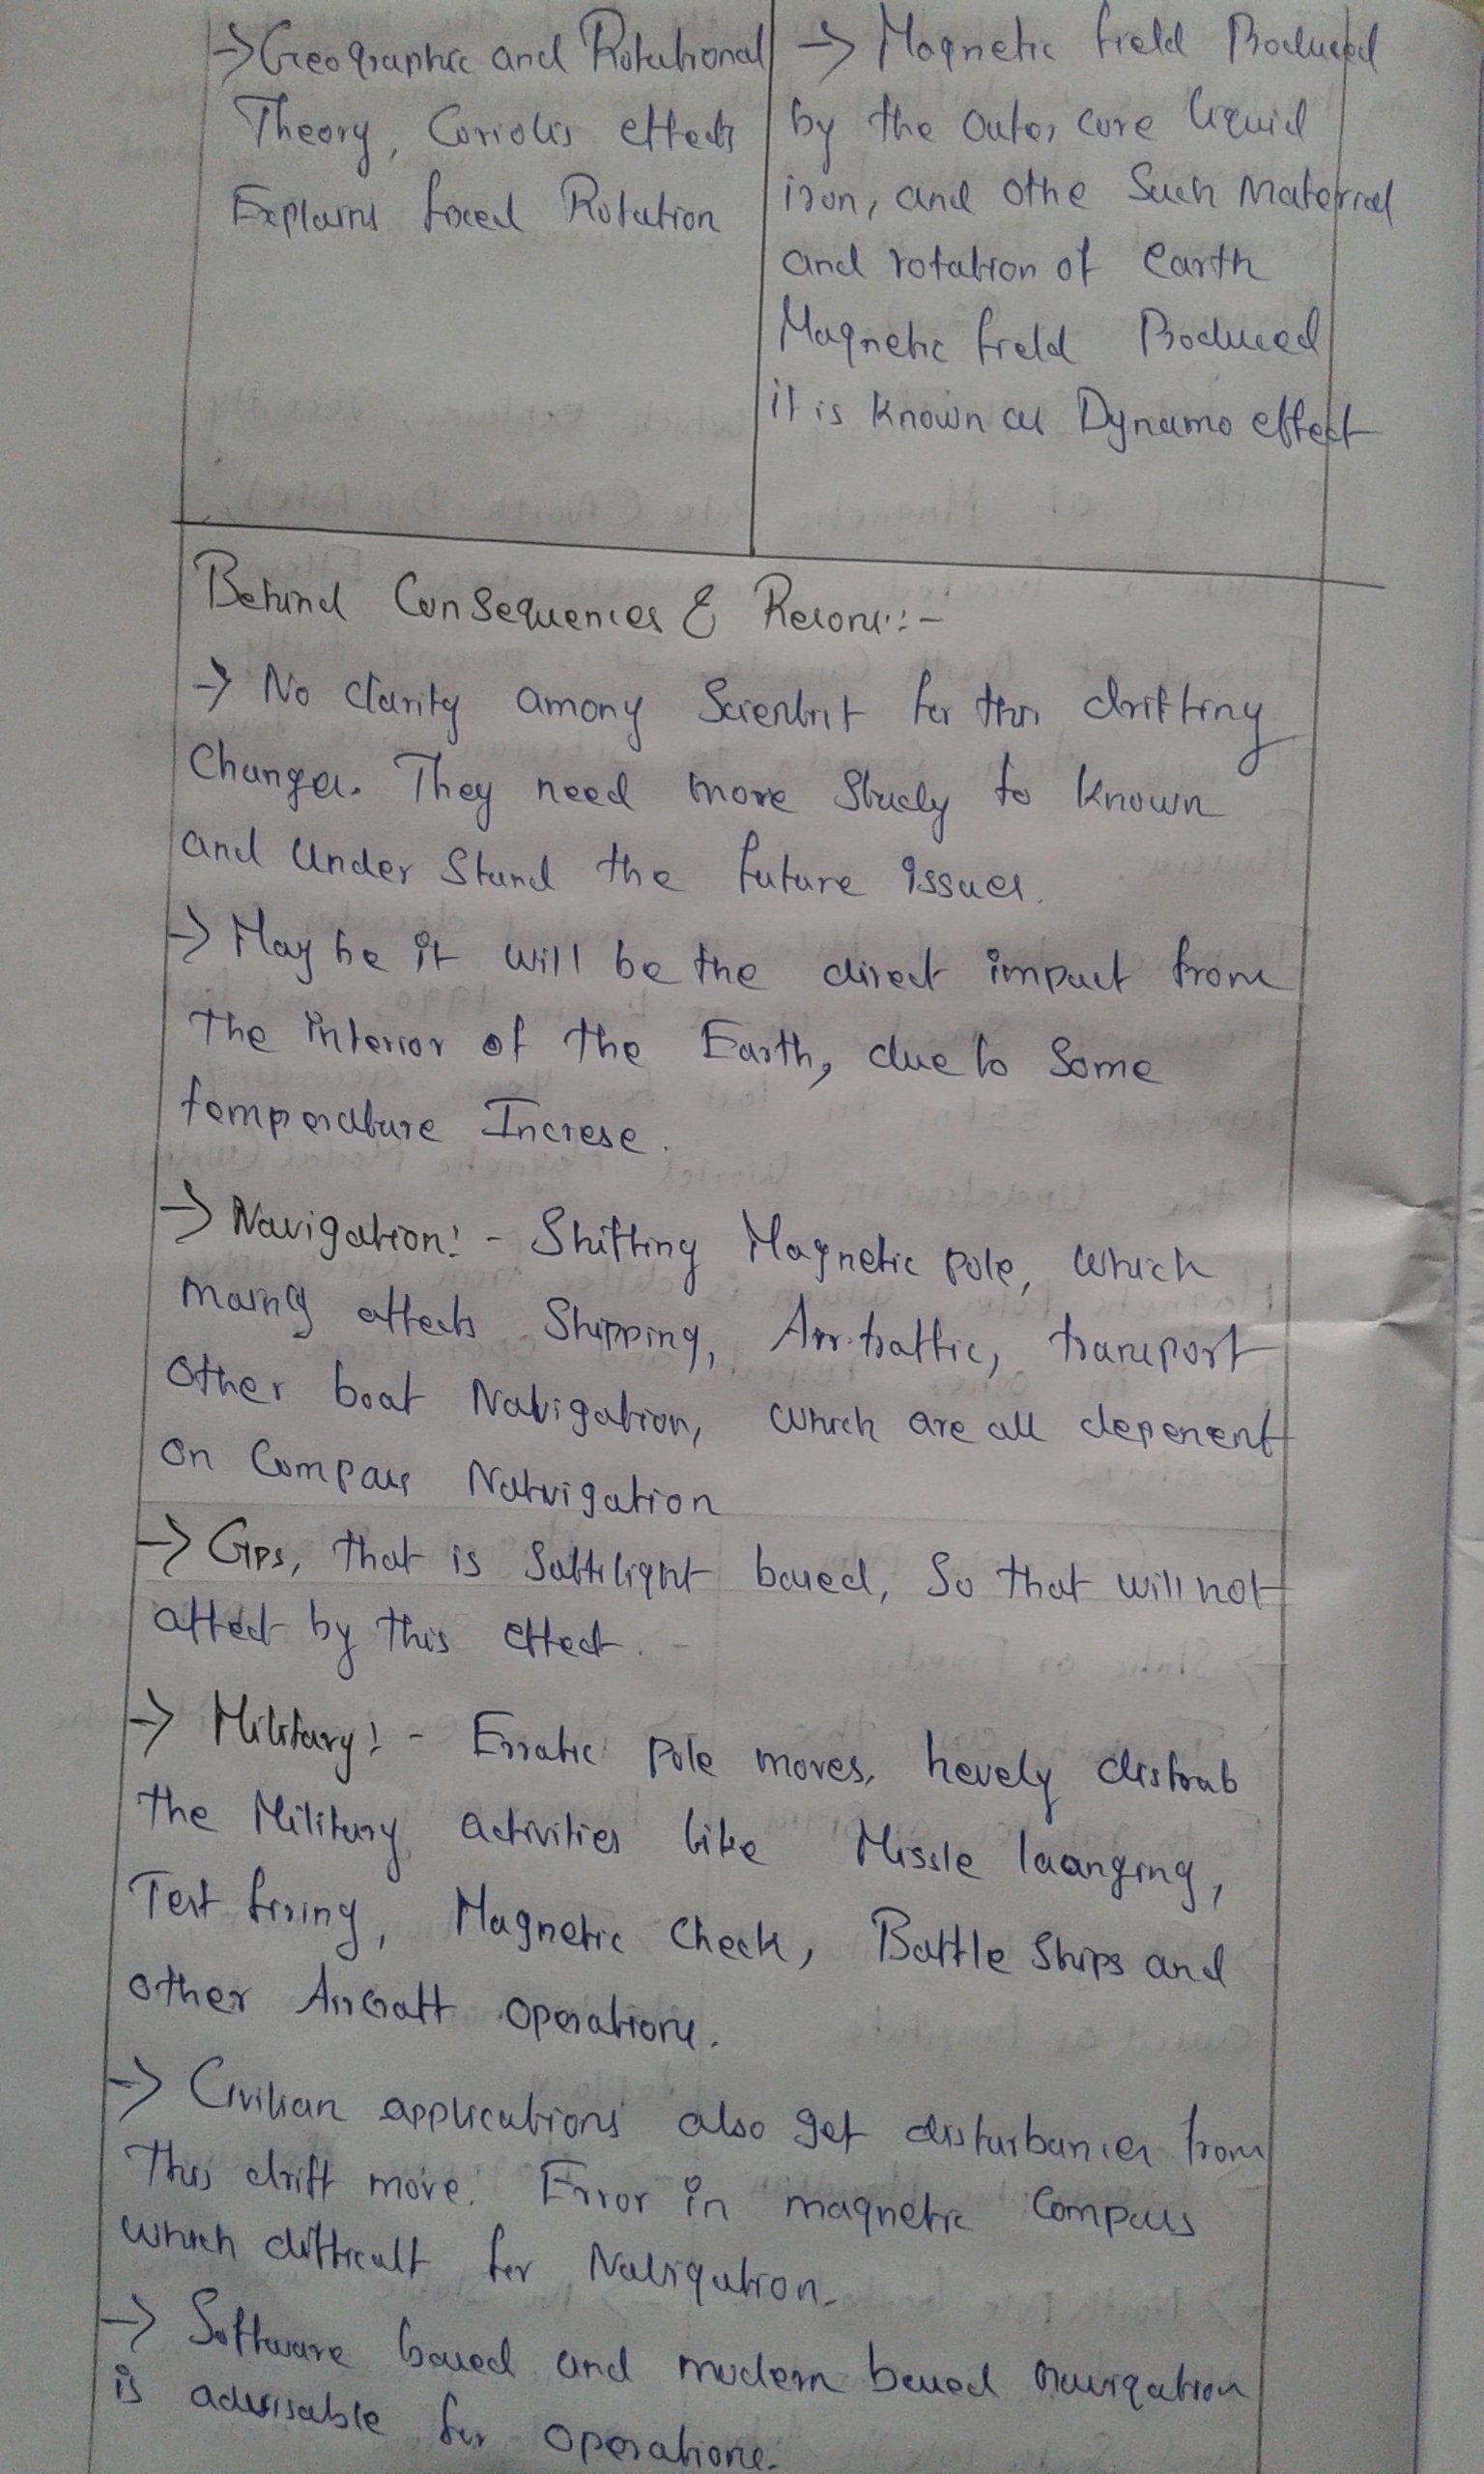 → Geographic and Rotational
Theory, Coriolis effects
Explains fixed Rotation
→ Magnetic field Produced
by the outer core liquid
iron, and othe Such Material
and rotation of earth
Magnetic field Produced
it is known as Dynamo effect
Behind Consequences & Resons:-
→ No clarity among Scientist for this drifting
Changes. They need more Study to known
and Under Stand the future issues.
→ May be it will be the direct impact from
the interior of the Earth, due to Some
temperature Increse.
→ Navigation:- Shifting Magnetic pole, which
mainly affects Shipping, Air traffic, transport
other boat Navigation, which are all depenent
on Compass Natvigation
→ Gps, that is Sattilight based, So that will not
affect by this effect.
→ Military:- Erratic pole moves, hevely distrab
the Military activities like Missle laanging,
Test firing, Magnetic Check, Battle Ships and
other Aircraft operations.
→ Civilian applications also get disturbances from
This drift move. Error in magnetic Compass
which difficult for Navigation.
→ Software based and modern based navigation
is advisable for operations.